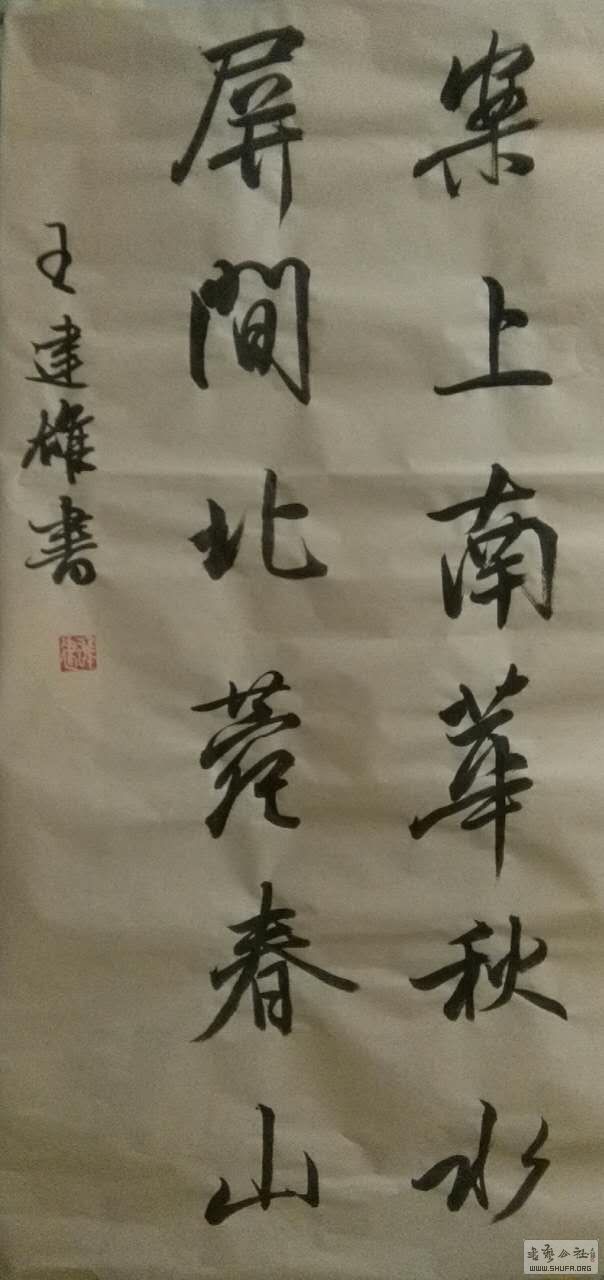 案上南華秋水
屏間北苑春山
王建雄書
书艺公社
WWW.SHUFA.ORG